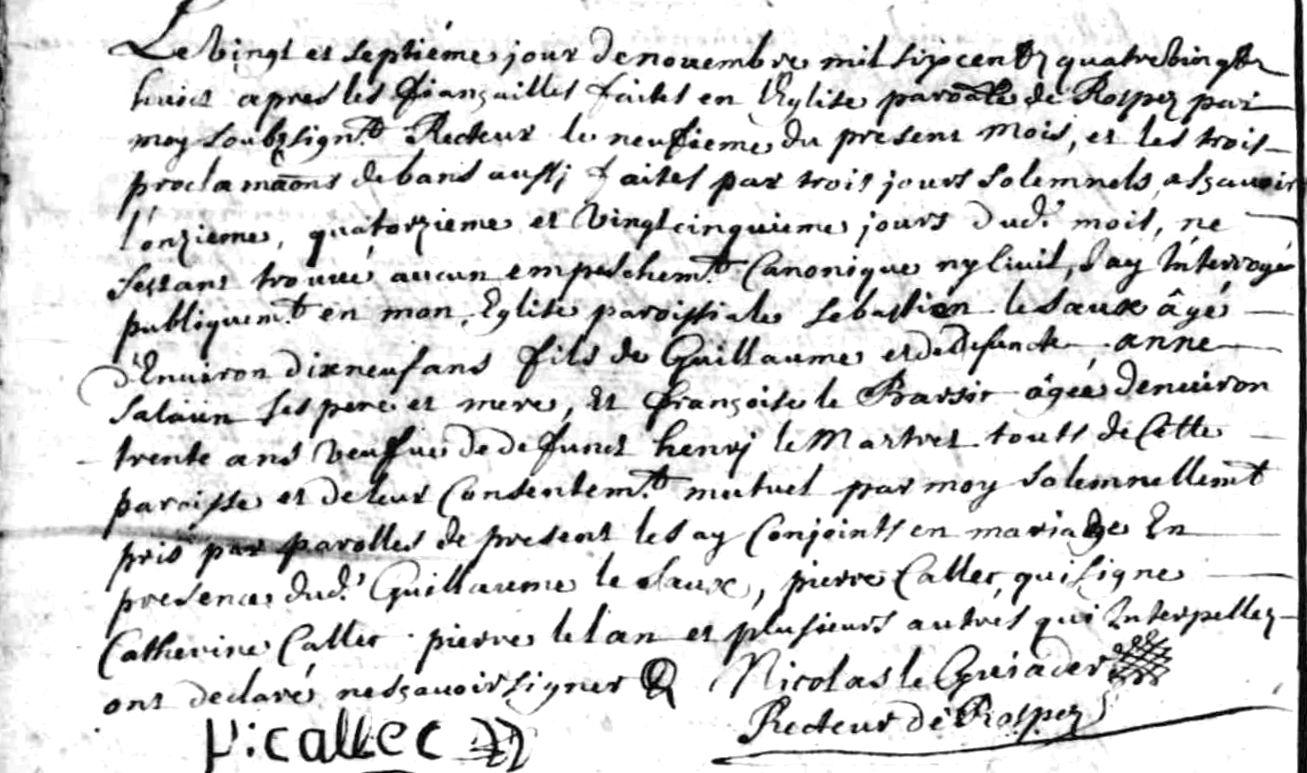 Le vingt et septiéme jour de novembre mil six cents quatre vingts
huict apres les fiançailles faites en l'Eglise paroalle de Rospez par
moy soubsignt Recteur le neufieme du present mois, et les trois
proclamaons de bans aussj faites par trois jours solemnels, assçavoir
l'onzieme, quatorzieme et vingt cinquieme jours dudt mois, ne
s'estant trouvé aucun empeschemt Canonique ny Civil, J'ay Interrogé
publiquemt en mon Eglise paroissiale sebastien le saux âgé
d'Environ dixneuf ans fils de Guillaume et de Defuncte anne
salaün ses pere et mere, et françoise le âgée denviron
trente ans veufve de defunct henrj le Martret touts de Cette
paroisse et de leur Consentemt mutuel par moy solemnellemt
pris par parolles de present les ay Conjoints en mariage En
presence dudt Guillaume le saux, pierre Callec, qui signe
Catherine Callec pierre le lan et plusieurs autres qui Interpellez
ont declaré ne sçavoir signer
Nicolas le
Recteur de Rospez
p: callec